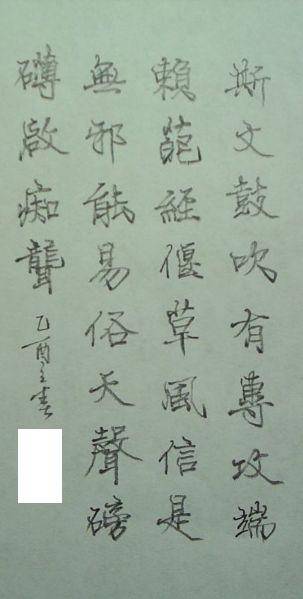 斯文鼓吹有專攻端
賴葩經偃草風信是
無邪能易俗天聲磅
礴啟痴聾 乙酉